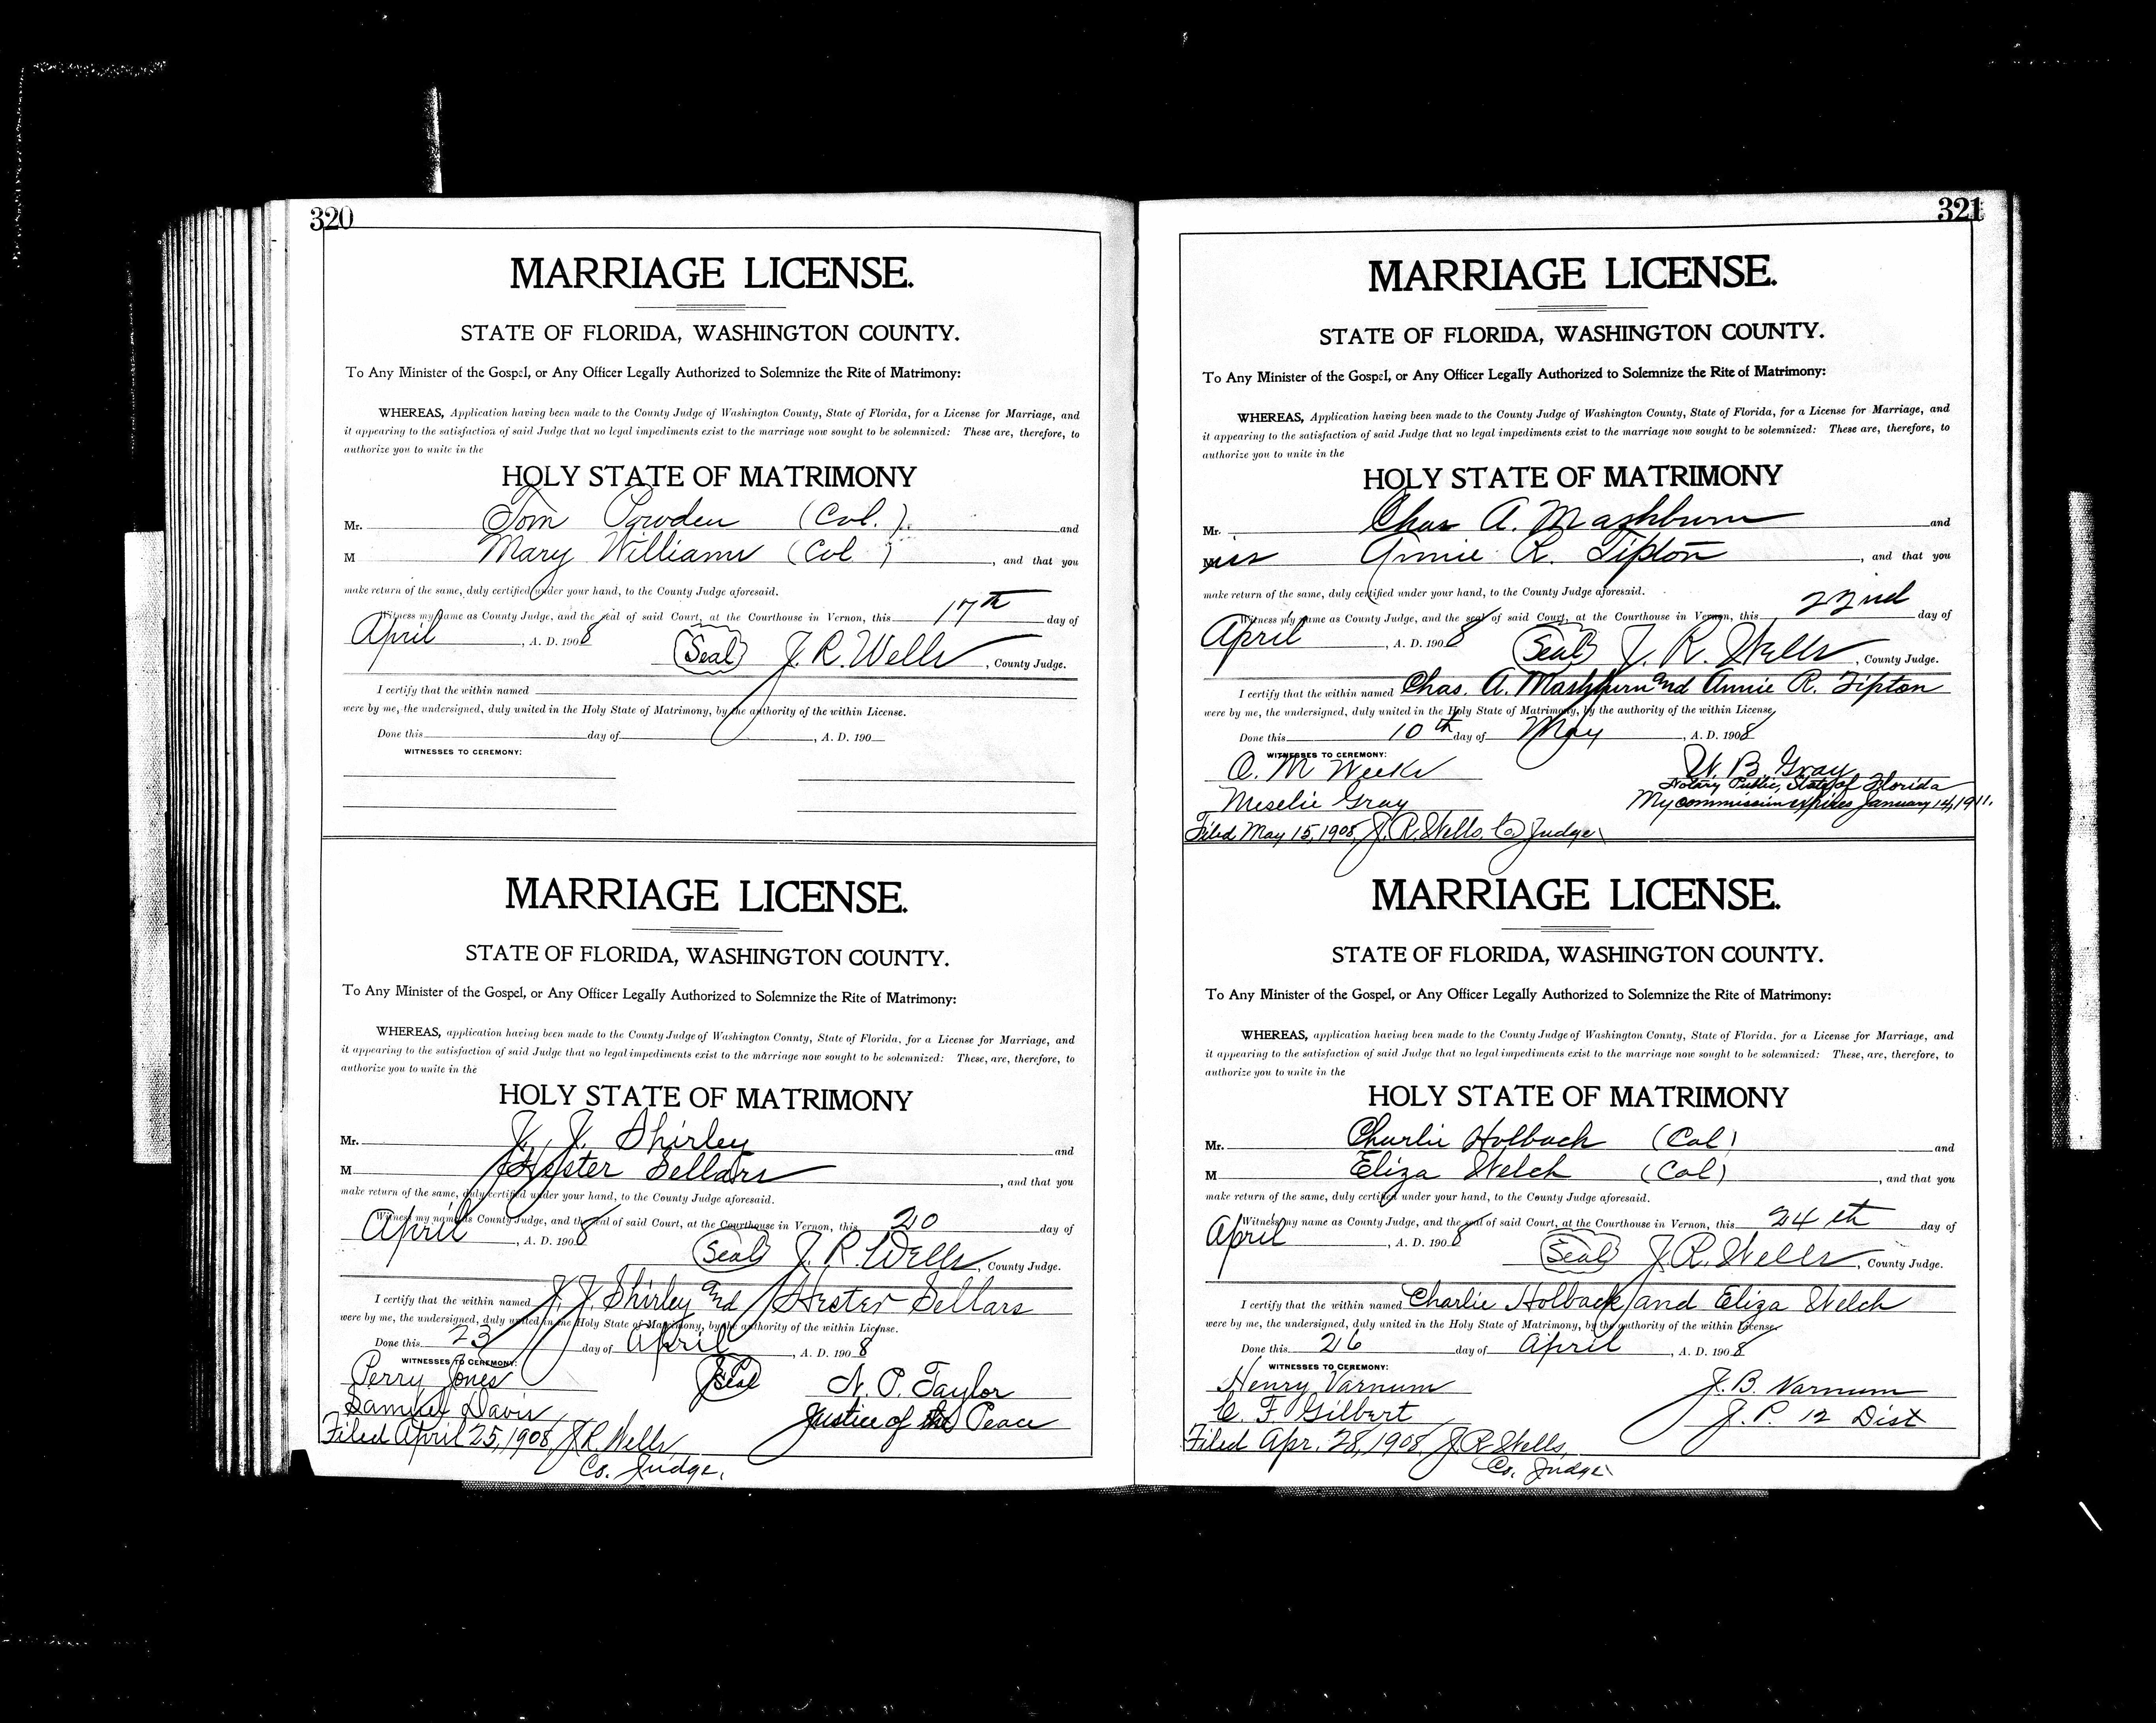 320
MARRIAGE LICENSE.
STATE OF FLORIDA, WASHINGTON COUNTY.
To Any Minister of the Gospel, or Any Officer Legally Authorized to Solemnize the Rite of Matrimony:
WHEREAS, Application having been made to the County Judge of Washington County, State of Florida, for a License for Marriage, and
it appearing to the satisfaction of said Judge that no legal impediments exist to the marriage now sought to be solemnized: These are, therefore, to
authorize you to unite in the
HOLY STATE OF MATRIMONY
Mr. Tom (Col.) and
M Mary Williams (Col ), and that you
make return of the same, duly certified under your hand, to the County Judge aforesaid.
Witness my name as County Judge, and the seal of said Court, at the Courthouse in Vernon, this 17th day of
April, A. D. 1908 (Seal) J. R. Wells, County Judge.
I certify that the within named
were by me, the undersigned, duly united in the Holy State of Matrimony, by the authority of the within License.
Done this day of , A. D. 190
WITNESSES TO CEREMONY:
MARRIAGE LICENSE.
STATE OF FLORIDA, WASHINGTON COUNTY.
To Any Minister of the Gospel, or Any Officer Legally Authorized to Solemnize the Rite of Matrimony:
WHEREAS, application having been made to the County Judge of Washington County, State of Florida, for a License for Marriage, and
it appearing to the satisfaction of said Judge that no legal impediments exist to the marriage now sought to be solemnized: These, are, therefore, to
authorize you to unite in the
HOLY STATE OF MATRIMONY
Mr. J. J. Shirley and
M Hester Sellars, and that you
make return of the same, duly certified under your hand, to the County Judge aforesaid.
Witness my name as County Judge, and the seal of said Court, at the Courthouse in Vernon, this 20 day of
April, A. D. 1908 (Seal) J. R. Wells, County Judge.
I certify that the within named J. J. Shirley and Hester Sellars
were by me, the undersigned, duly united in the Holy State of Matrimony, by the authority of the within License.
Done this 23 day of April, A. D. 1908
WITNESSES TO CEREMONY:
Perry Jones (Seal) N. P. Taylor
Samuel Davis Justice of the Peace
Filed April 25, 1908, J. R. Wells,
Co. Judge.
321
MARRIAGE LICENSE.
STATE OF FLORIDA, WASHINGTON COUNTY.
To Any Minister of the Gospel, or Any Officer Legally Authorized to Solemnize the Rite of Matrimony:
WHEREAS, Application having been made to the County Judge of Washington County, State of Florida, for a License for Marriage, and
it appearing to the satisfaction of said Judge that no legal impediments exist to the marriage now sought to be solemnized: These are, therefore, to
authorize you to unite in the
HOLY STATE OF MATRIMONY
Mr. Chas A. Mashburn and
Miss Annie R. Tipton, and that you
make return of the same, duly certified under your hand, to the County Judge aforesaid.
Witness my name as County Judge, and the seal of said Court, at the Courthouse in Vernon, this 22nd day of
April, A. D. 1908 (Seal) J. R. Wells, County Judge.
I certify that the within named Chas. A. Mashburn and Annie R. Tipton
were by me, the undersigned, duly united in the Holy State of Matrimony, by the authority of the within License.
Done this 10th day of May, A. D. 1908
WITNESSES TO CEREMONY:
A. M Weeks W. B. Gray
Notary Public, State of Florida
Gray My commission expires January 14, 1911.
Filed May 15, 1908, J. R. Wells, Co Judge
MARRIAGE LICENSE.
STATE OF FLORIDA, WASHINGTON COUNTY.
To Any Minister of the Gospel, or Any Officer Legally Authorized to Solemnize the Rite of Matrimony:
WHEREAS, application having been made to the County Judge of Washington County, State of Florida, for a License for Marriage, and
it appearing to the satisfaction of said Judge that no legal impediments exist to the marriage now sought to be solemnized: These, are, therefore, to
authorize you to unite in the
HOLY STATE OF MATRIMONY
Mr. Charlie Holback (Col) and
M Eliza Welch (Col), and that you
make return of the same, duly certified under your hand, to the County Judge aforesaid.
Witness my name as County Judge, and the seal of said Court, at the Courthouse in Vernon, this 24th day of
April, A. D. 1908 (Seal) J. R. Wells, County Judge.
I certify that the within named Charlie Holback and Eliza Welch
were by me, the undersigned, duly united in the Holy State of Matrimony, by the authority of the within License.
Done this 26 day of April, A. D. 1908
WITNESSES TO CEREMONY:
Henry Varnum J. B. Varnum
C. F. Gilbert J. P. 12 Dist
Filed Apr. 28, 1908, J. R. Wells,
Co. Judge